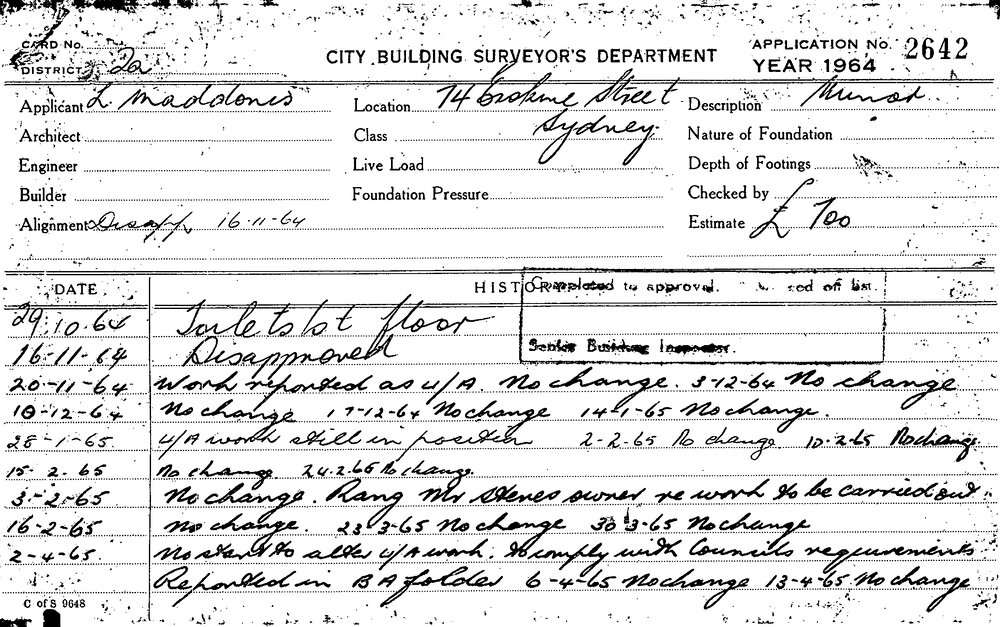 CARD No.
DISTRICT 2a
CITY BUILDING SURVEYOR'S DEPARTMENT
APPLICATION No. 2642
YEAR 1964
Applicant L Maddonis
Location 74 Erskine Street
Sydney
Description Minor
Architect
Class
Nature of Foundation
Engineer
Live Load
Depth of Footings
Builder
Foundation Pressure
Checked by
Alignment Disapp 16-11-64
Estimate £ 700
DATE
HISTORY
Completed to approval. ed off list.
Senior Building Inspector.
29.10.64 Toilets 1st floor
16-11-64 Disapproved
20-11-64 Work reported as U/A. No change. 3-12-64 No change
10-12-64 No change 17-12-64 No change 14-1-65 No change.
28-1-65. U/A work still in position 2-2-65 No change 10-2-65 No change
15-2-65 No change 24-2-65 No change.
3-2-65 No change. Rang Mr owner re work to be carried out.
16-2-65 No change. 23-3-65 No change 30-3-65 No change
2-4-65. No start to alter U/A work. to comply with Councils requirements
Reported in BA folder 6-4-65 No change 13-4-65 No change
C of S 9648